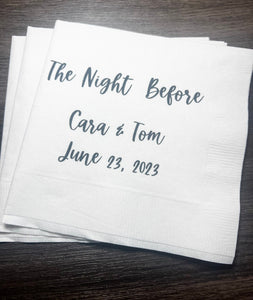 The Night Before
Cara & Tom
June 23, 2023